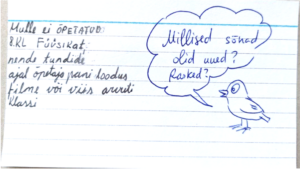 Mulle ei ÕPETATUD
8KL FÜÜSIKAT.
nende tundide
ajal õpetaja pani loodus
filme või viis arvuti
klassi
Millised sõnad
olid uued?
Rasked?